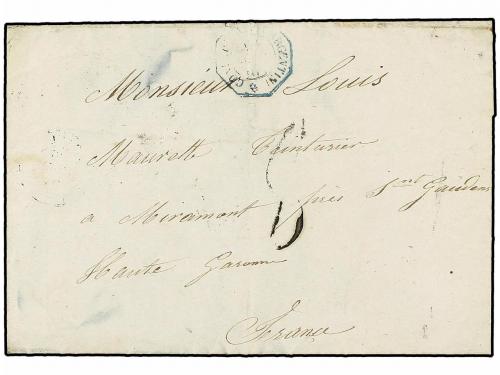 Monsieur Louis
Maurette Teinturier
a Miramont près St Gaudens
Haute Garonne
France